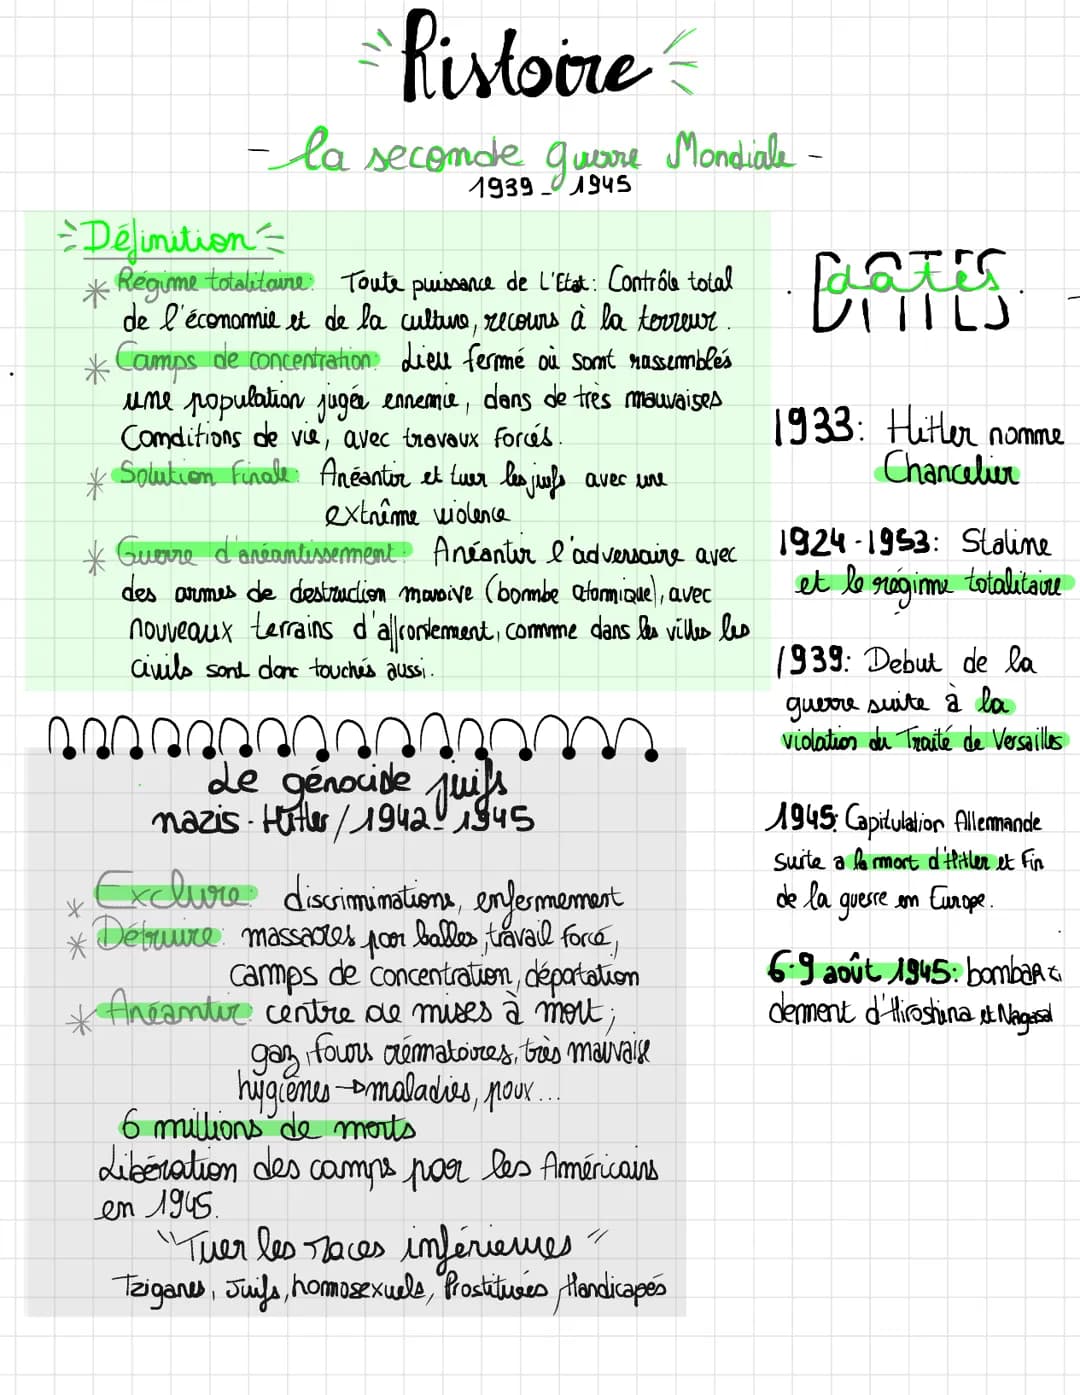 Histoire
- la seconde guerre Mondiale -
1939 - 1945
Définition
* Régime totalitaire: Toute puissance de l'Etat: Contrôle total
de l'économie et de la culture, recours à la terreur.
* Camps de concentration: Lieu fermé où sont rassemblés
une population jugée ennemie, dans de très mauvaises
Conditions de vie, avec travaux forcés.
* Solution Finale: Anéantir et tuer les juifs avec une
extrême violence
* Guerre d'anéantissement: Anéantir l'adversaire avec
des armes de destruction massive (bombe atomique), avec
nouveaux terrains d'affrontement, comme dans les villes les
civils sont donc touchés aussi.
Le génocide juifs
nazis - Hitler / 1942 - 1945
* Exclure: discriminations, enfermement
* Détruire: massacres par balles, travail forcé,
camps de concentration, déportation
* Anéantir: centre de mises à mort;
gaz, fours crématoires, très mauvaise
hygiènes → maladies, poux...
6 millions de morts
Libération des camps par les Américains
en 1945.
"Tuer les races inférieures"
Tziganes, Juifs, homosexuels, Prostituées, Handicapés
dates
1933: Hitler nomme
Chancelier
1924 - 1953: Staline
et le régime totalitaire
1939: Debut de la
guerre suite à la
violation du Traité de Versailles
1945: Capitulation Allemande
Suite a la mort d'Hitler et Fin
de la guerre en Europe.
6-9 août 1945: bombar
dement d'Hiroshina et Nagasal